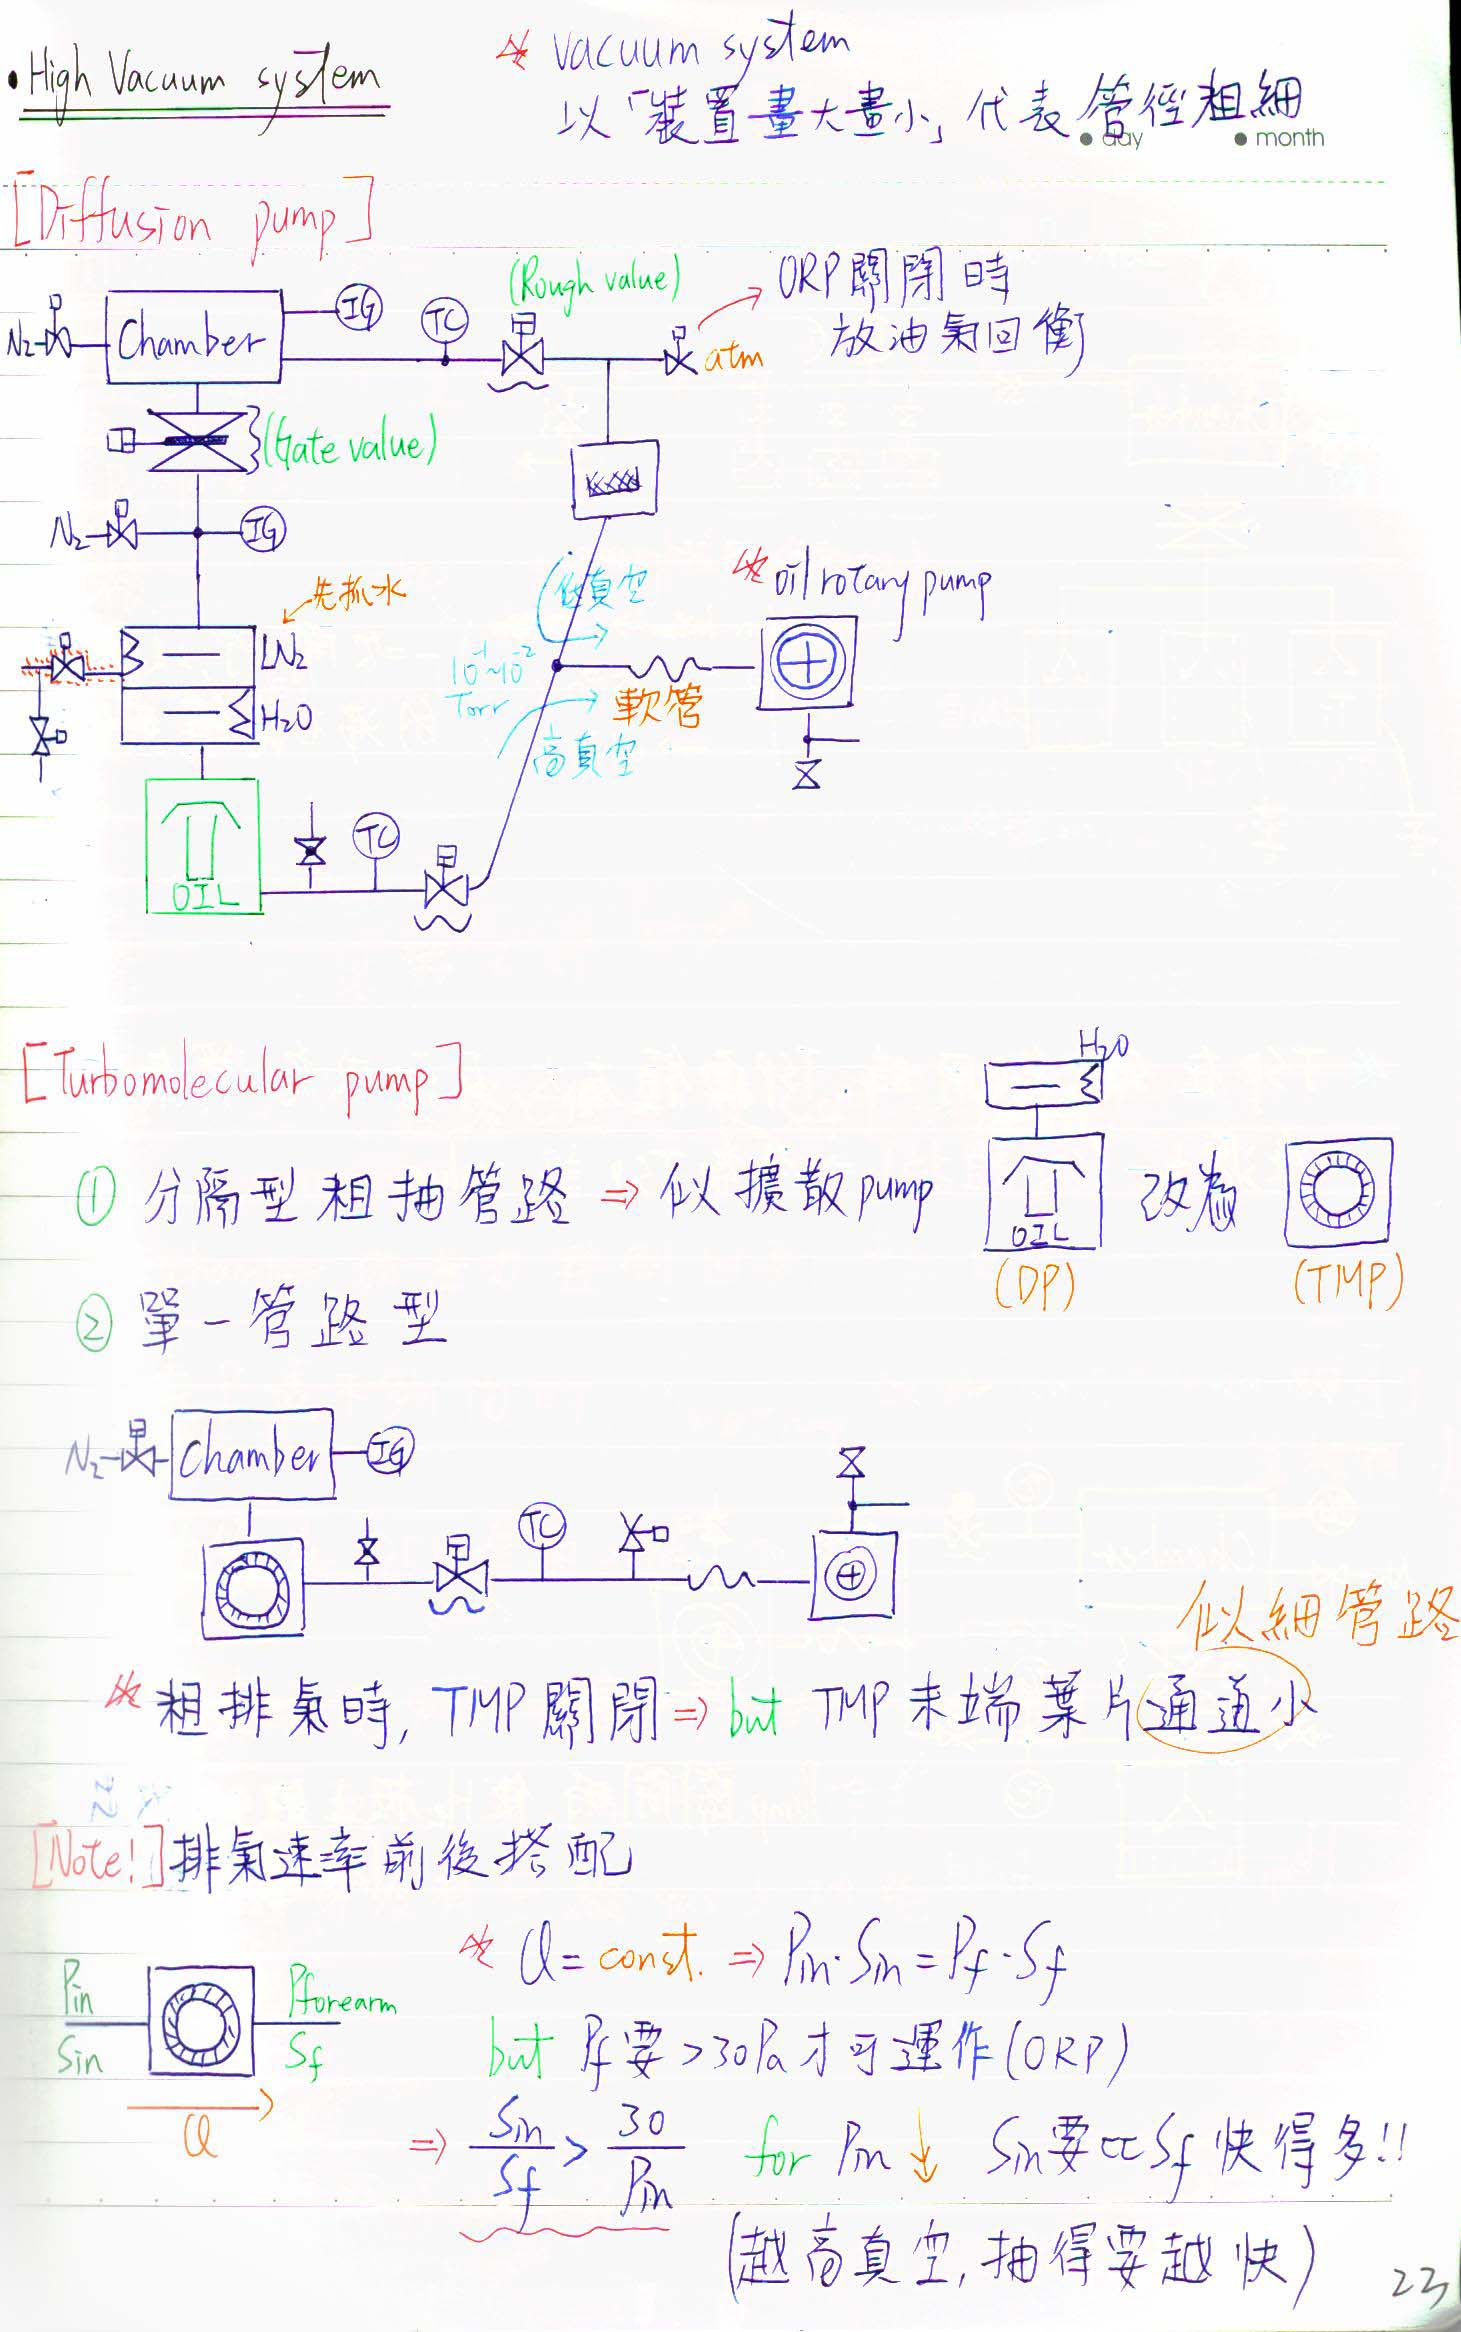 • High Vacuum system
* vacuum system
以「裝置畫大畫小」代表管徑粗細
• day • month
[Diffusion pump]
(Rough value)
ORP關閉時
放油氣回衝
N2 Chamber IG TC atm
(Gate value)
N2 IG
先抓水
低真空
* oil rotary pump
LN2
10^-1~10^-2
Torr
軟管
H2O
高真空
TC
OIL
[Turbomolecular pump]
H2O
① 分隔型粗抽管路 ⇒ 似擴散pump OIL 改為
(DP) (TMP)
② 單一管路型
N2 Chamber IG
TC
似細管路
* 粗排氣時, TMP關閉 ⇒ but TMP末端葉片通道小
[Note!] 排氣速率前後搭配
* Q = const. ⇒ Pin·Sin = Pf·Sf
Pin Pforearm
Sin Sf
but Pf要>30Pa才可運作(ORP)
Q
⇒ Sin/Sf > 30/Pin for Pin ↓ Sin要比Sf快得多!!
(越高真空, 抽得要越快)
23